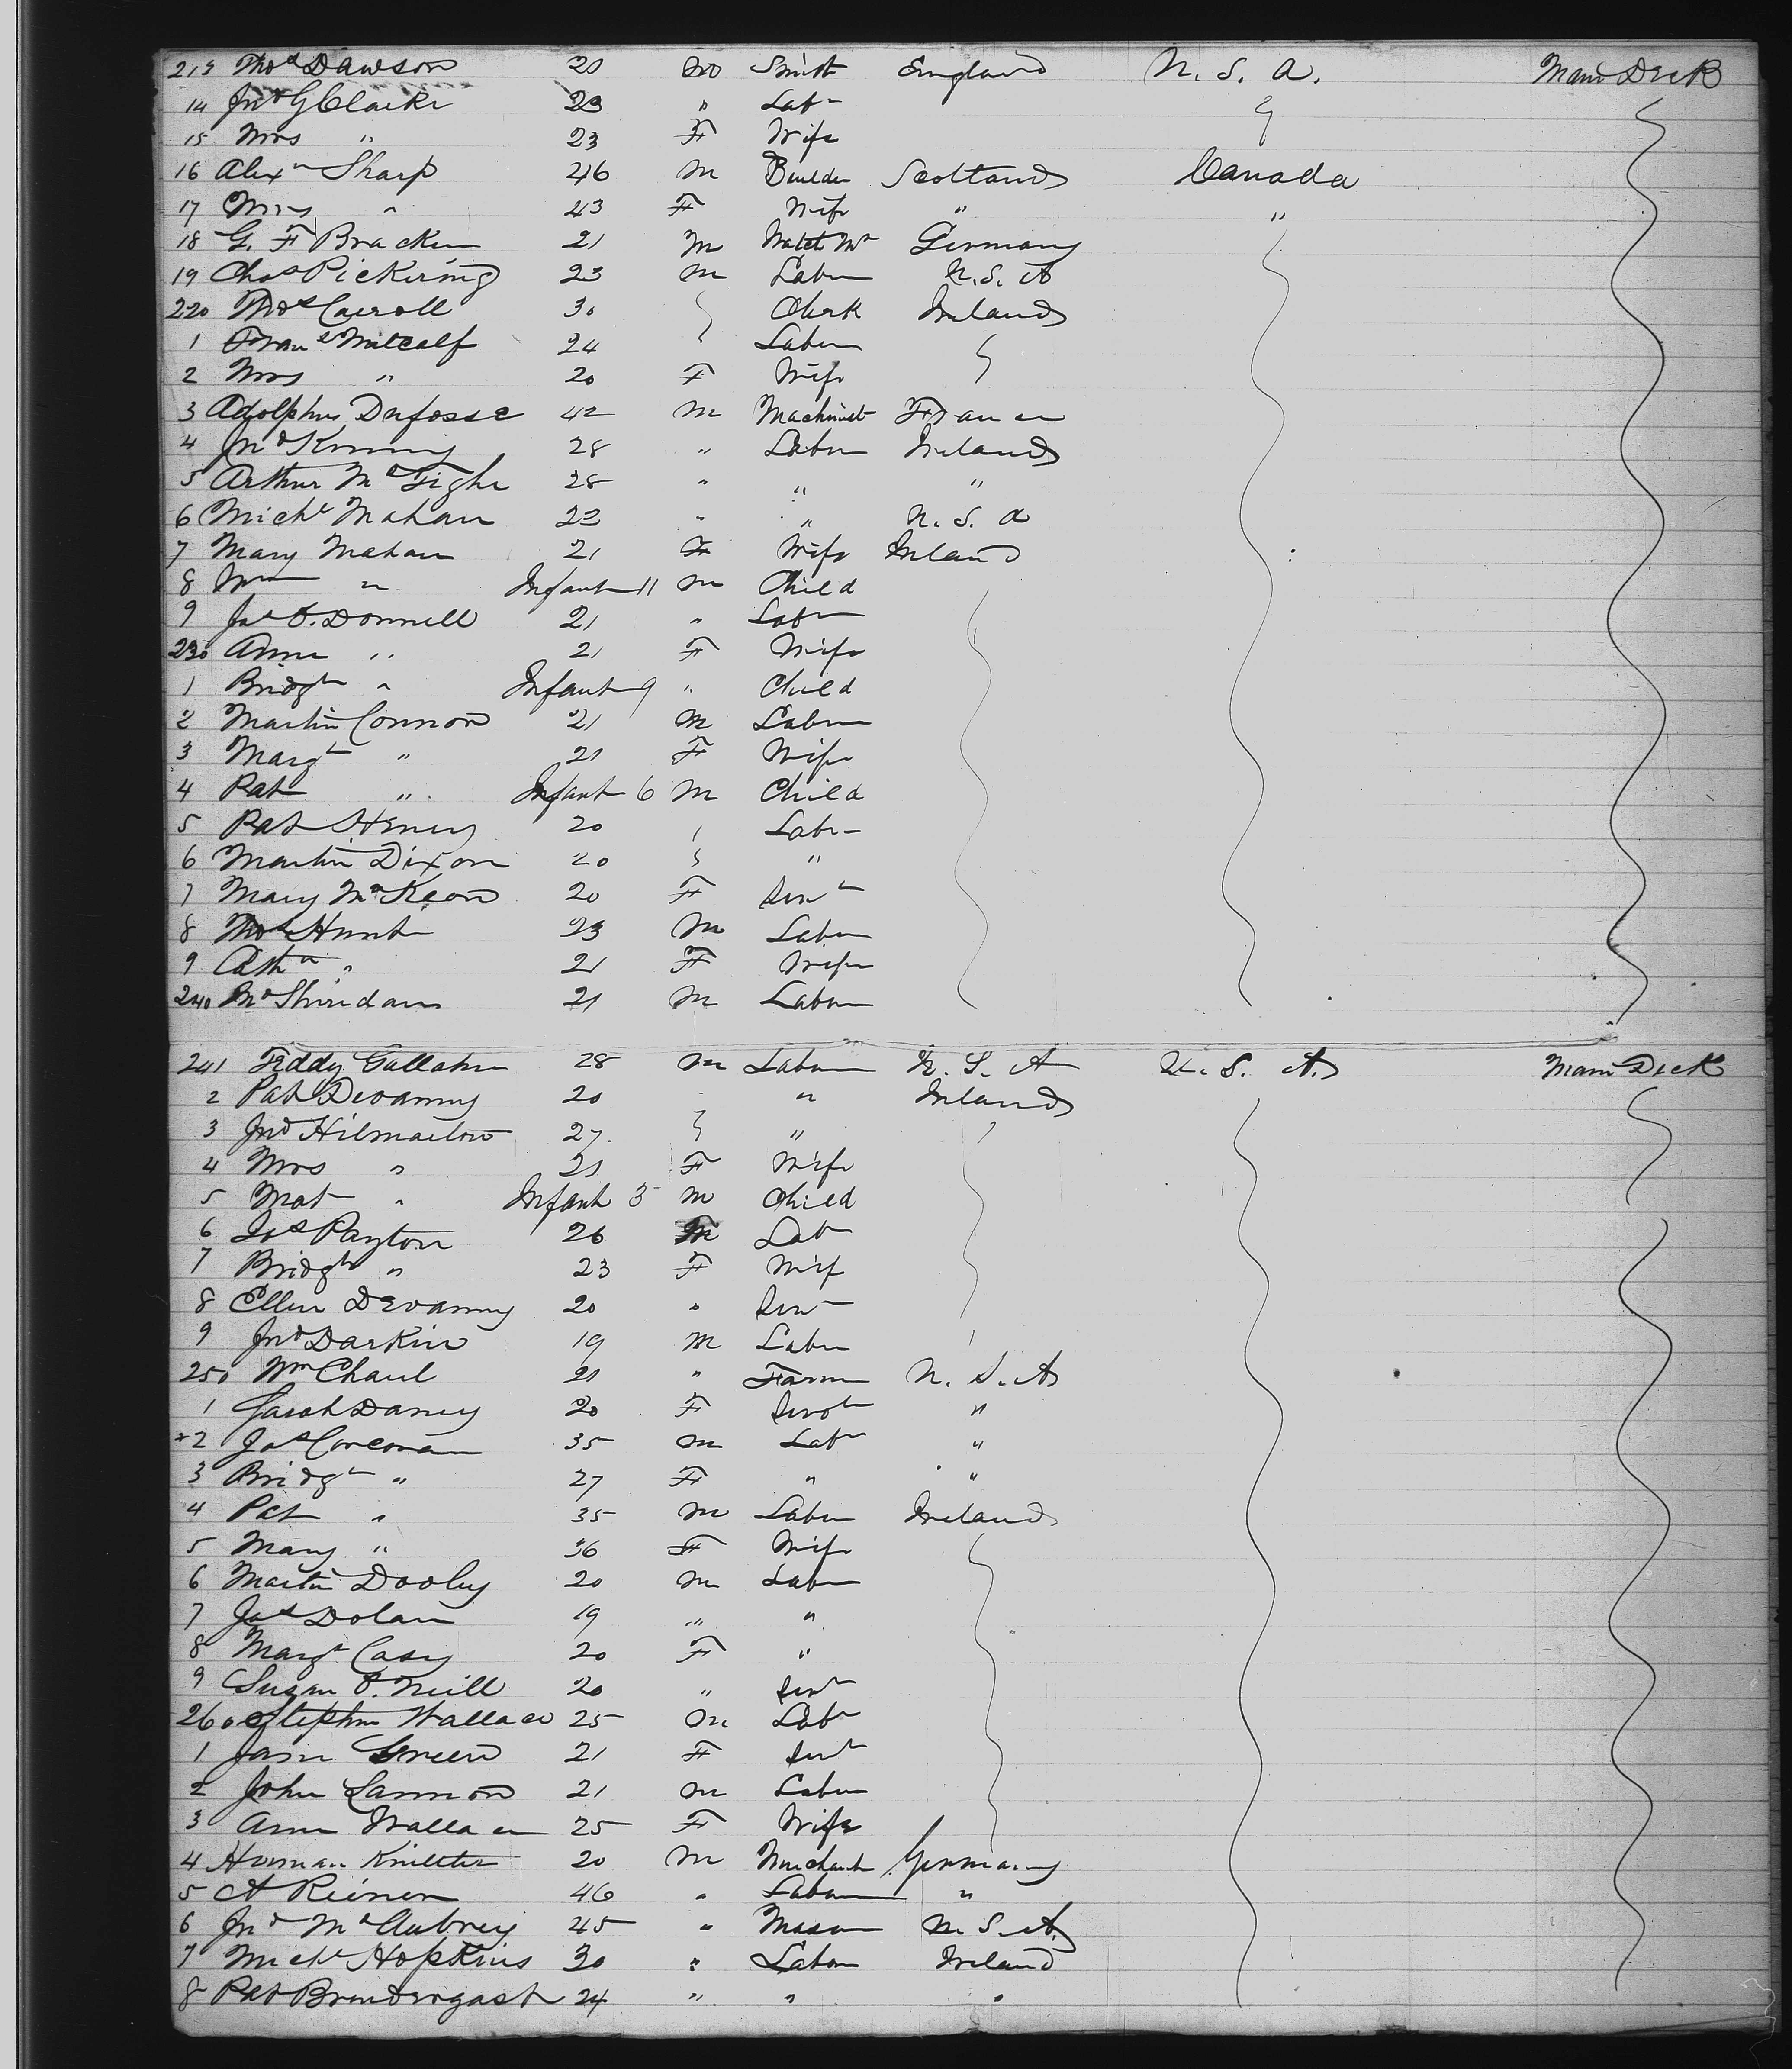 213 Thos Dawson 21 m Smith England U. S. A. Main Deck
14 Jno G Clarke 23 " Labr
15 Mrs " 23 F Wife
16 Alexr Sharp 46 m Builder Scotland Canada
17 Mrs " 43 F Wife " "
18 G. F Bracken 21 m Watch Mr Germany
19 Chas Pickering 23 m Labur U. S. A
220 Thos Carroll 30 Clerk Ireland
1 Frans Metcalf 24 Labur
2 Mrs " 20 F Wife
3 Adolphus Dufosse 42 m Machinist France
4 Jno Kenny 28 " Labur Ireland
5 Arthur McTighe 28 " " "
6 Michl Mahan 22 " " U. S. A
7 Mary Mahan 21 F Wife Ireland
8 Wm " Infant 11 m Child
9 Jas O. Donnell 21 " Labr
230 Anne " 21 F Wife
1 Bridgt " Infant 9 " Child
2 Martin Connor 21 m Labur
3 Margt " 21 F Wife
4 Pat " Infant 6 m Child
5 Pat Henry 20 Labr
6 Martin Dixon 20 "
7 Mary McKeon 20 F Servt
8 Thos Hunt 23 m Labur
9 Cathn " 21 F Wife
240 Sheridan 21 m Labur
241 Teddy Gallaher 28 m Labur U. S. A U. S. A. Main Deck
2 Pat Devanny 20 " Ireland
3 Jno 27 "
4 Mrs " 21 F Wife
5 Mat " Infant 3 m Child
6 Jos Payton 26 m Labr
7 Bridgt " 23 F Wif
8 Ellen Devanny 20 " Servt
9 Jno Darkin 19 m Labur
250 Wm 21 " Farmer U. S. A
1 Sarah Dancy 20 F Servt "
+2 Jas Corcoran 35 m Labr "
3 Bridgt " 27 F " "
4 Pat " 35 m Labur Ireland
5 Mary " 36 F Wife
6 Martin Dooley 20 m Labur
7 Jas Dolan 19 " "
8 Margt Casey 20 F "
9 Susan O. Neill 20 " Servt
260 Stephen Wallace 25 m Labr
1 Jane Green 21 F Servt
2 John Lannon 21 m Labur
3 Ann Wallace 25 F Wife
4 Herman 20 m Merchant Germany
5 A 46 " Labour "
6 Jno McAubrey 45 " Mason U. S. A.
7 Michl Hopkins 30 " Labour Ireland
8 Pat Brendergast 24 " " "